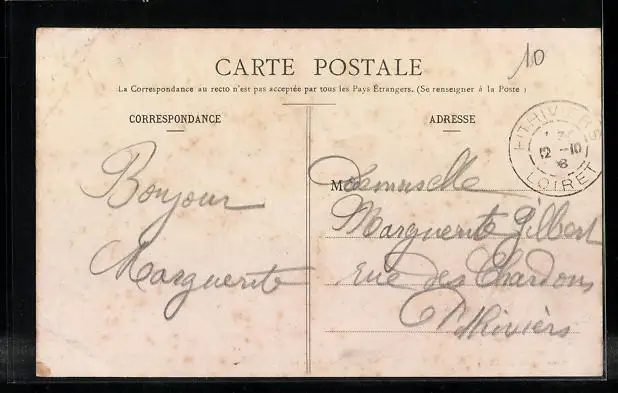 10
CARTE POSTALE
La Correspondance au recto n'est pas acceptée par tous les Pays Étrangers. (Se renseigner à la Poste)
CORRESPONDANCE
ADRESSE
PITHIVIERS
LOIRET
Bonjour
Marguerite
Mademoiselle
Marguerite Gilbert
rue des Chardons
Pithiviers